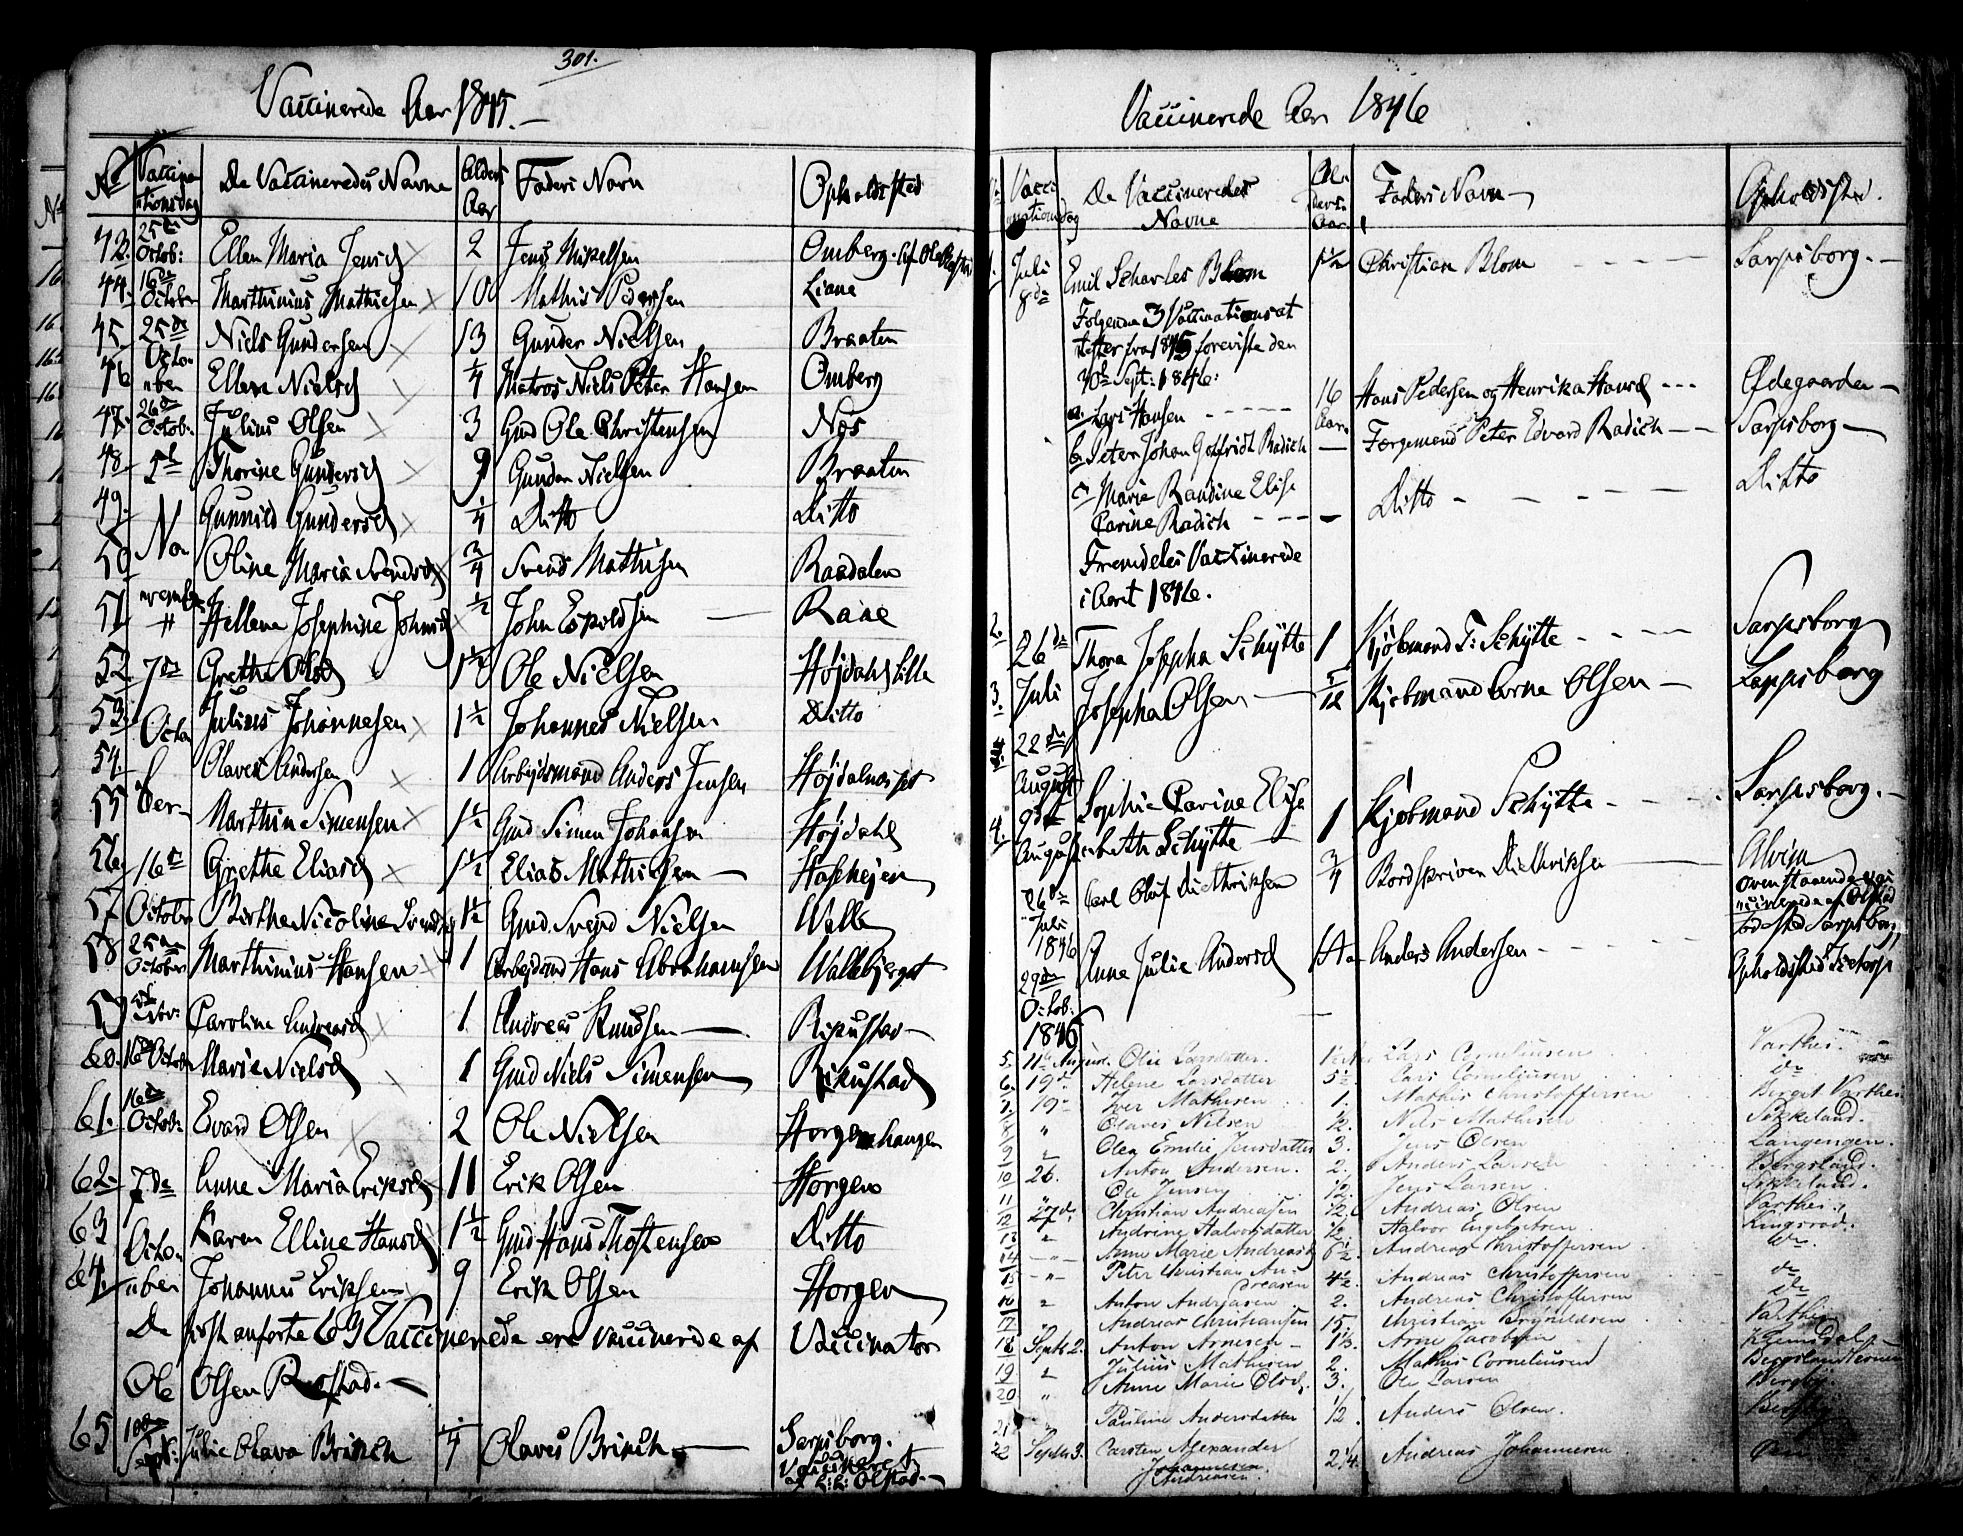 301.
Vaccinerede Aar 1845.
No Vaccinationsdag De Vaccineredes Navne Alder Aar Faders Navn Opholdsted
43. 25de Octob: Ellen Maria Jensd 2 Jens Mikelsen Omberg.
44. 16de October Marthinius Mathiesen 10 Mathis Pedersen Liane
45. 25de Niels Gundersen 13 Gunder Nielsen Braaten
46 Octo- Ellen Nielsd 1/4 Matros Niels Peter Hansen Omberg
ber
47. 26de Octob: Julius Olsen 3 Gmd Ole Christensen Næs
48 Thorine Gundersd 9 Gunder Nielsen Braaten
49. Gunnild Gundersd 1/4 Ditto Ditto
50 No Oline Maria Svendsd 3/4 Svend Mathisen Raadalen
51 vember Hellene Josephine Johnsd 1/2 John Eskildsen
52. 7de Grethe Olsd 1 1/2 Ole Nielsen Højdahl lille
53. Octo Julius Johannesen 1 1/2 Johannes Nielsen Ditto
54. Olaves Andersen 1 Arbejdsmand Anders Jensen
55 ber Marthin Simensen 1 1/2 Gmd Simen Johansen Højdahl
56 16de Grethe Eliasd 1 1/2 Elias Mathisen
57 October Birthe Nicoline Svendsd 1 1/2 Gmd. Svend Nielsen Walle
58 25de October Marthinius Hansen 1 Arbejdsmd Hans Abrahamsen Wallebjerget
59 Caroline Andreasd 1. Andreas Knudsen
60. 16de Octob Marie Nielsd 1 Gmd Niels Simensen
61. 16de Octob: Edvard Olsen 2 Ole Nielsen Horgenhaugen
62. 7de Anne Maria Eriksd 11 Erik Olsen Horgen
63 Octo- Karen Elline Hansd 1 1/2 Gmd Hans Thostensen Ditto
64. ber Johannes Eriksen 9 Erik Olsen Horgen
De først anførte 63 Vaccinerede ere vaccinerede af Vaccinator
Ole Olsen
65 Sept: Julie Olava Brinch Olaves Brinch Sarpsborg.
Vaccineret
af Olstad.
Vaccinerede Aar 1846
Vaccinationsdag De Vaccineredes Navne Alders Aar. Faders Navn Opholdsted.
1. Juli 8de Emil Scharles Blom 1 1/2 Christian Blom Sarpsborg.
Følgende 3 Vaccinationsat
tester fra 1845 foreviste den
Sept: 1846:
a. Lars Hansen 16 Aar. Hans Pedersen og Henrika Hansd Ødegaarden
b. Peter Johan Gotfridt Radich Færgemand Peter Edvard Radich Sarpsborg
c Marie Randine Elise
Carine Radich Ditto Ditto
Fremdeles Vaccinerede
i Aaret 1846.
2. 26de Thora Josepha Schytte 1 Kjøbmand T: Schytte Sarpsborg
3. Juli Josepha Olsen 5/12 Kjøbmand Arne Olsen Sarpsborg
22de
August Sophie Carine Elise
4. August Schytte 1 Kjøbmand Schytte Sarpsborg.
26de Juli 1846 Carl Oluf Diethriksen 3/4 Diethriksen Alvim
Ovenstaaende
vaccinerede af Olstad
Sarpsborg
29de Octob: 1846 Anne Julie Andersd Anders Andersen Opholdsted
5. 11te August. Olie Larsdatter. Lars Corneliussen Varthei.
6. 19de Helene Larsdatter 5 1/2 Lars Corneliussen do
7. 19. Iver Mathisen 1. Mathis Christoffersen Berget Varthei
8 " Olaves Nilsen 1/2. Nils Mathisen
9 " Olea Emilie Jensdatter 3. Jens Olsen Langengen.
10 26. Anton Andersen. 2. Anders Larsen Bergsland.
11 " Ole Jensen 1/2. Jens Larsen
12 27de. Christian Andreasen 1/2. Andreas Olsen Varthei.
13 " Andrine Halvorsdatter 1/2 Halvor Engebretsen
14 - " - Anne Marie Andreasd 6 1/2. Andreas Christoffersen do
15 - " - Peter Christian An-
dreasen 4 1/2. Andreas Christoffersen do
16 " Anton Andreasen 2. Andreas Christoffersen do
17. " Andreas Christiansen 15. Christian Varthei
18 Septb 2. Anton Arnesen 1 1/3. Arne Jacobsen
19 " Julius Mathisen 2. Mathis Corneliussen
20 " Anne Marie Olsd. 3. Ole Larsen Bergby
21 " Pauline Andersdatter 1/2. Anders Olsen. Bergby
22 Septb 3. Carsten Alexander 2 1/4. Andreas Johannesen
Johannesen.
Andreasen.